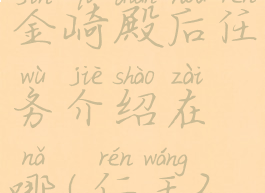 金崎殿后任
wù jiè shào zài
务介绍在
nǎ rén wáng
哪(仁王)